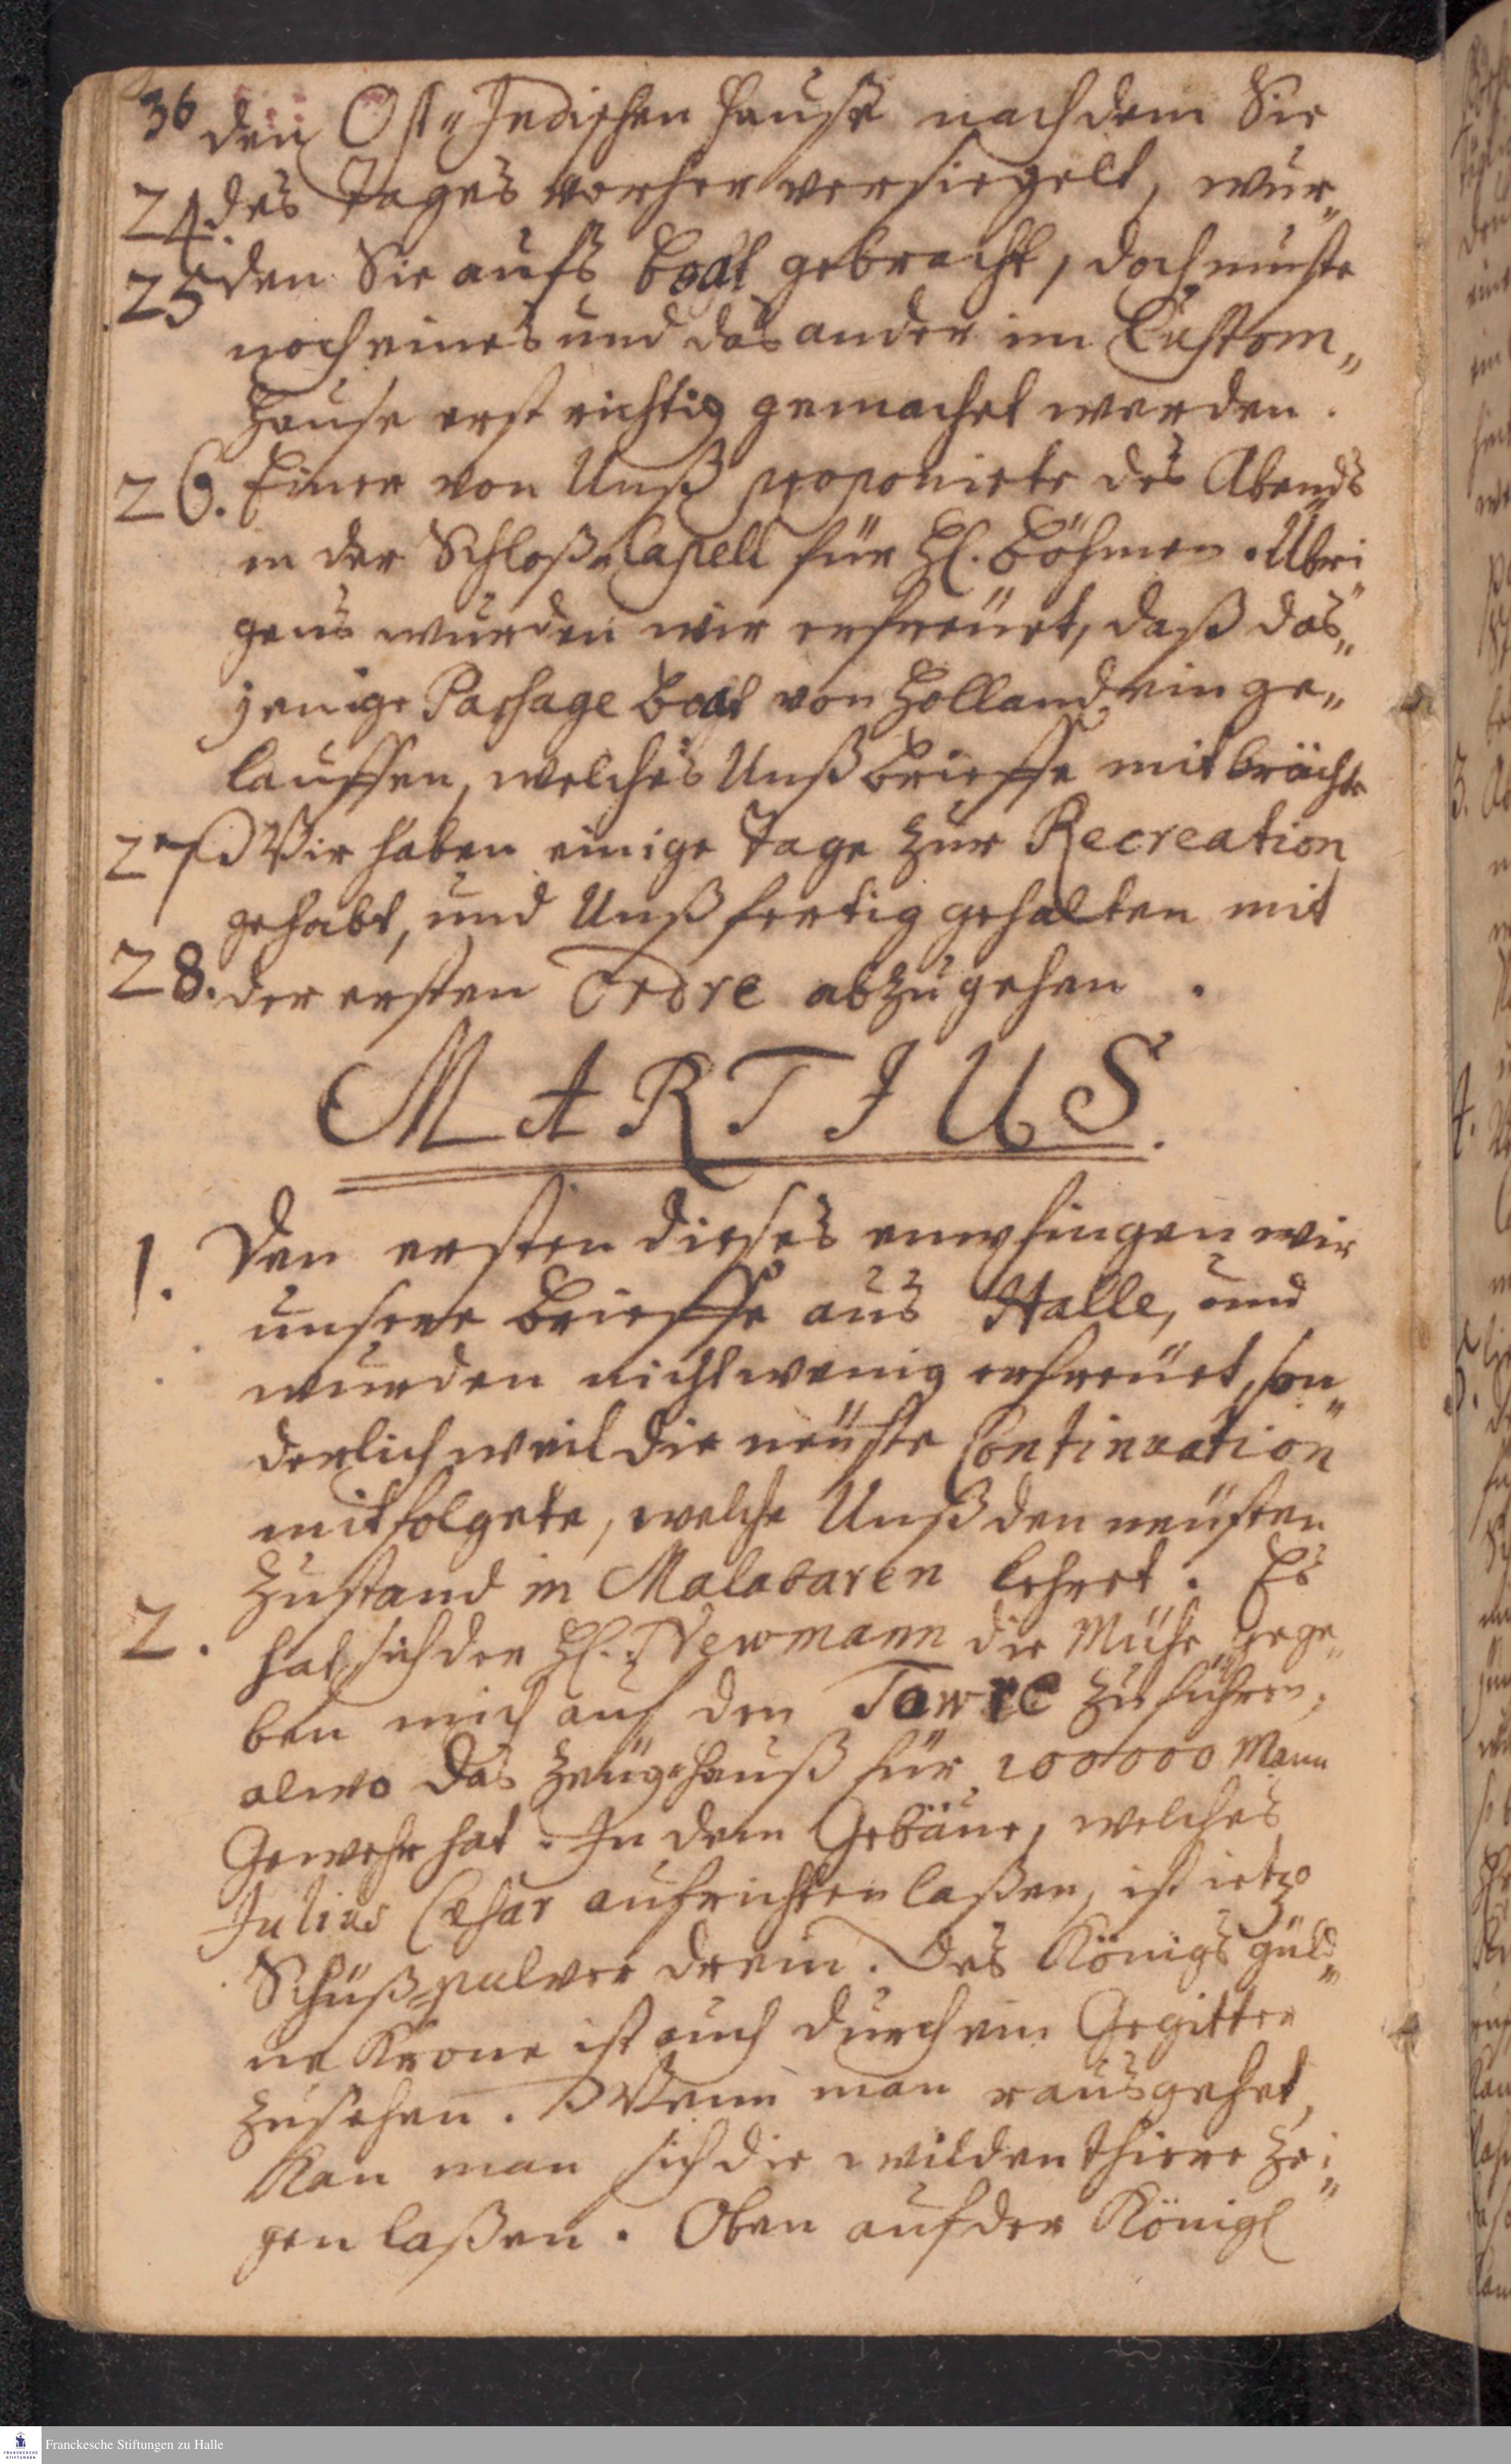 36 den Ost„Indischen Hause nachdem Sie
24. des Tages vorher versiegelt, wur„
25 den Sie aufs boat gebracht, doch muste
noch eines und das ander im Custom„
Hause erst richtig gemachet werden.
26. Einer von Unß proponirte des Abends
in der Schloß„Capell für H. Böhmen. Übri„
gens wurden wir erfreüet, daß das„
jenige Passage boat von Holland einge„
lauffen, welches Unß Brieffe mitbrächte
27 Wir haben einige Tage zur Recreation
gehabt, und Unß fertig gehalten mit
28. der ersten Ordre abzugehen.
MARTIUS.
1. Den ersten dieses empfingen wir
unsere Brieffe aus Halle, und
wurden nicht wenig erfreüet, son„
derlich weil die neüste Continuation
mitfolgete, welche Unß den neüsten
Zustand in Malabaren lehret. Es
2. hat sich der H. Newmann die Mühe gege„
ben mich auf den Towre zu führen,
alwo das Zeüghauß für 100000 Mann
Gewehr hat. In dem Gebäue, welches
Julius Cæsar aufrichten laßen, ist ietzo
Schuß=pulver drein. Des Königs güld„
ne Krone ist auch durch ein Gegitter
zusehen. Wenn man rausgehet,
Kan man sich die wilden thiere zei„
gen laßen. Oben auf der Königl
Franckesche Stiftungen zu Halle
FRANCKESCHE
STIFTUNGEN